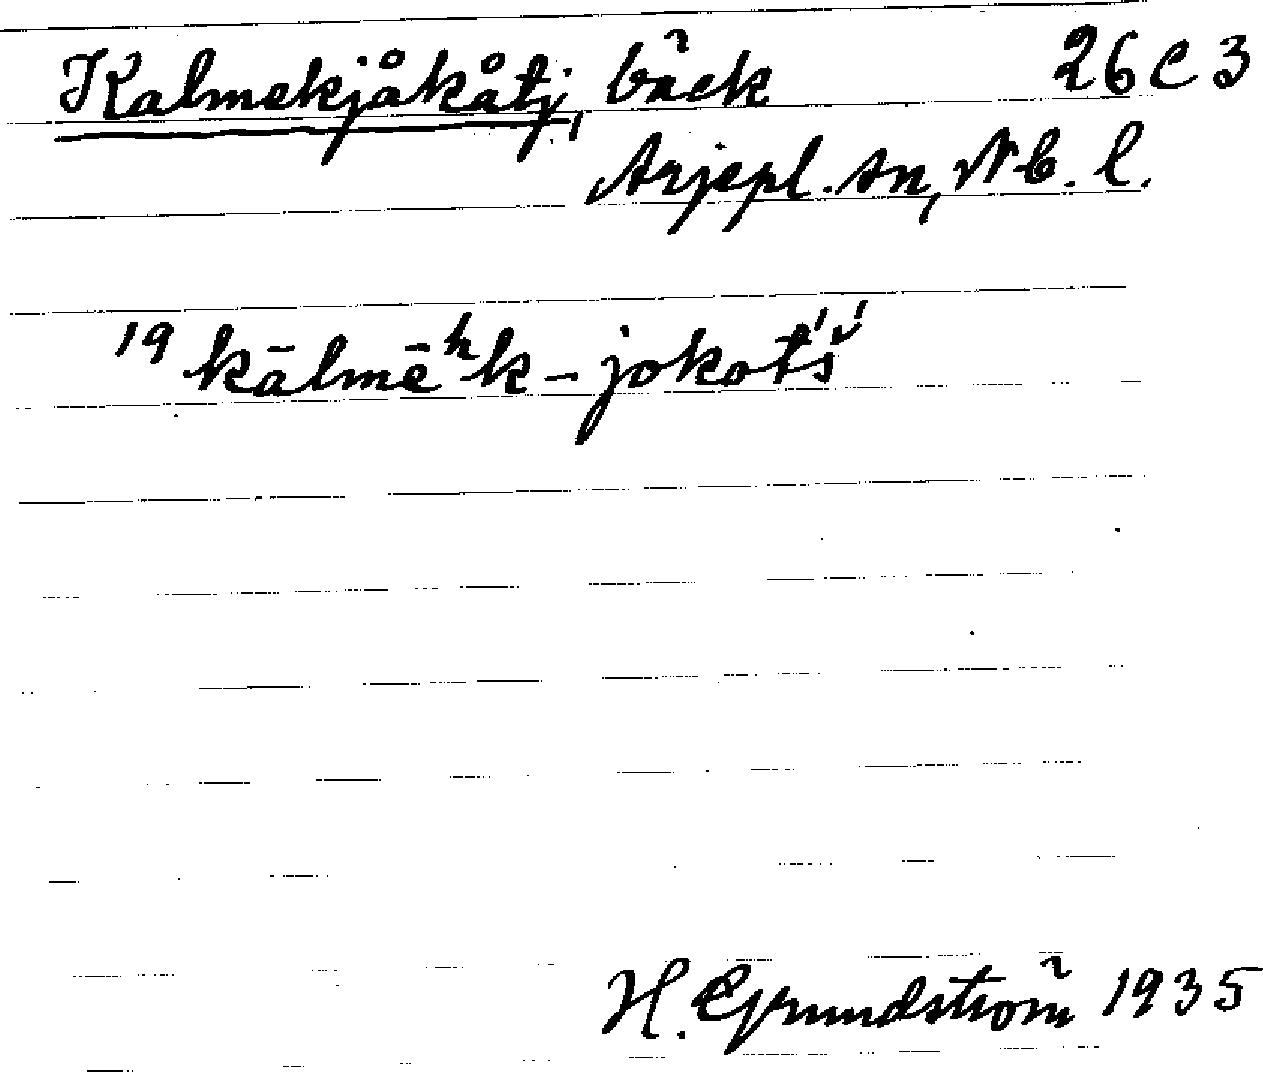 Kalmekjåkåtj, bäck 26 C 3
Arjepl. sn, Nb. l.
19 kālmēʰk-jokotś́
H. Grundström 1935